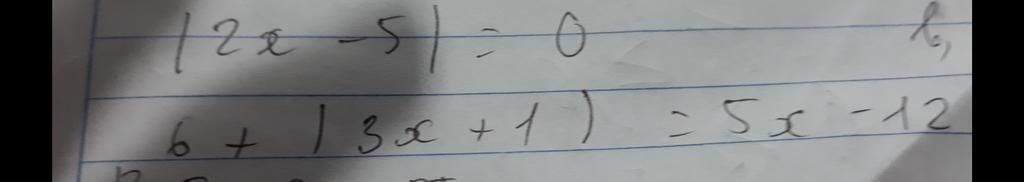 |2x - 5| = 0 b,
6 + |3x + 1) = 5x - 12